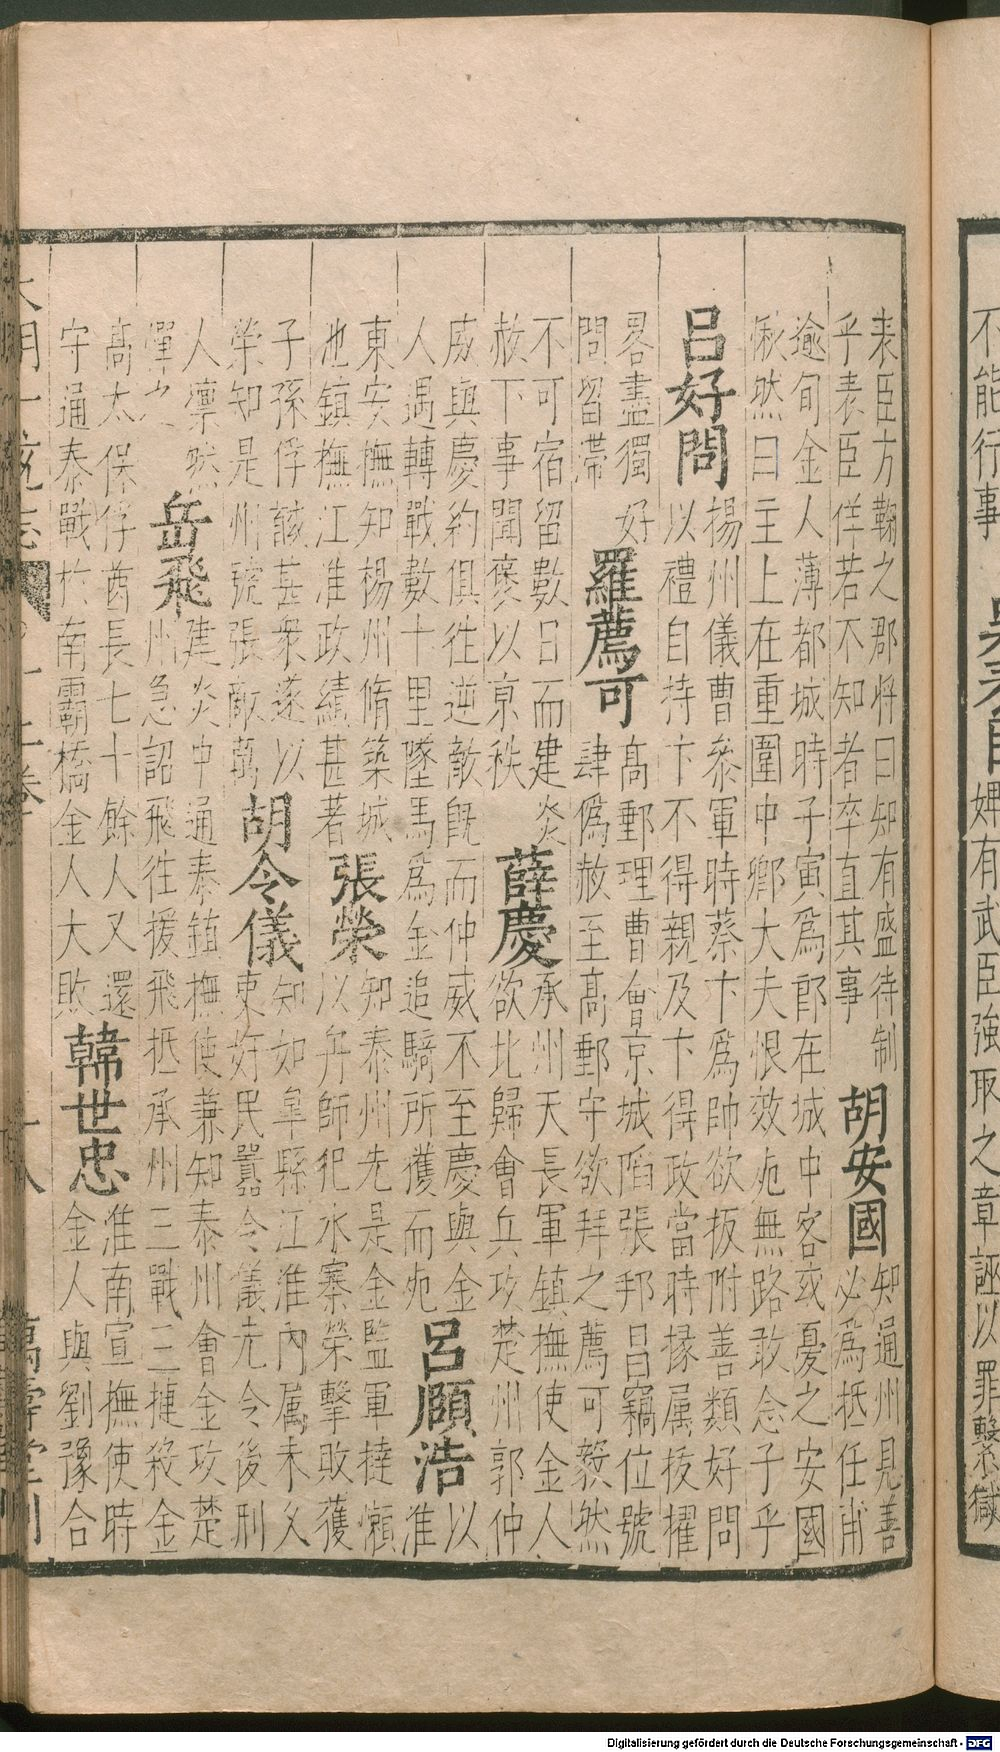 不能行事
婢有武臣強取之章誣以罪繫獄
表臣方鞠之郡將曰知有盛待制
乎表臣佯若不知者卒直其事
胡安國
知通州見善
必為抵任甫
逾旬金人薄都城時子寅為郎在城中客或憂之安國
愀然曰主上在重圍中卿大夫恨效死無路敢念子乎
呂好問
揚州儀曹叅軍時蔡卞為帥欲扳附善類好問
以禮自持卞不得親及卞得政當時掾属抜擢
畧盡獨好
問留滯
羅薦可
高郵理曹會京城䧟張邦昌竊位號
肆偽赦至高郵守欲拜之薦可毅然
不可宿留數日而建炎
赦下事聞褒以京秩
薛慶
承州天長軍鎮撫使金人
欲北歸會兵攻楚州郭仲
威與慶約俱往逆敵旣而仲威不至慶與金
人遇轉戰數十里墜馬為金追騎所獲而死
呂頤浩
以
淮
東安撫知楊州脩築城
池鎮撫江淮政績甚著
張榮
知泰州先是金監軍撻懶
以舟師犯水寨榮擊敗獲
子孫俘馘甚衆遂以
榮知是州號張敵萬
胡令儀
知如皐縣江淮內属未乂
吏好民囂令儀先令後刑
人凛然
憚之
岳飛
建炎中通泰鎮撫使兼知泰州會金攻楚
州急詔飛往援飛抵承州三戰三捷殺金
高太保俘酋長七十餘人又還
守通泰戰於南霸橋金人大敗
韓世忠
淮南宣撫使時
金人與劉豫合
大明一統志
十二卷
十八
萬壽堂刊
Digitalisierung gefördert durch die Deutsche Forschungsgemeinschaft - DFG